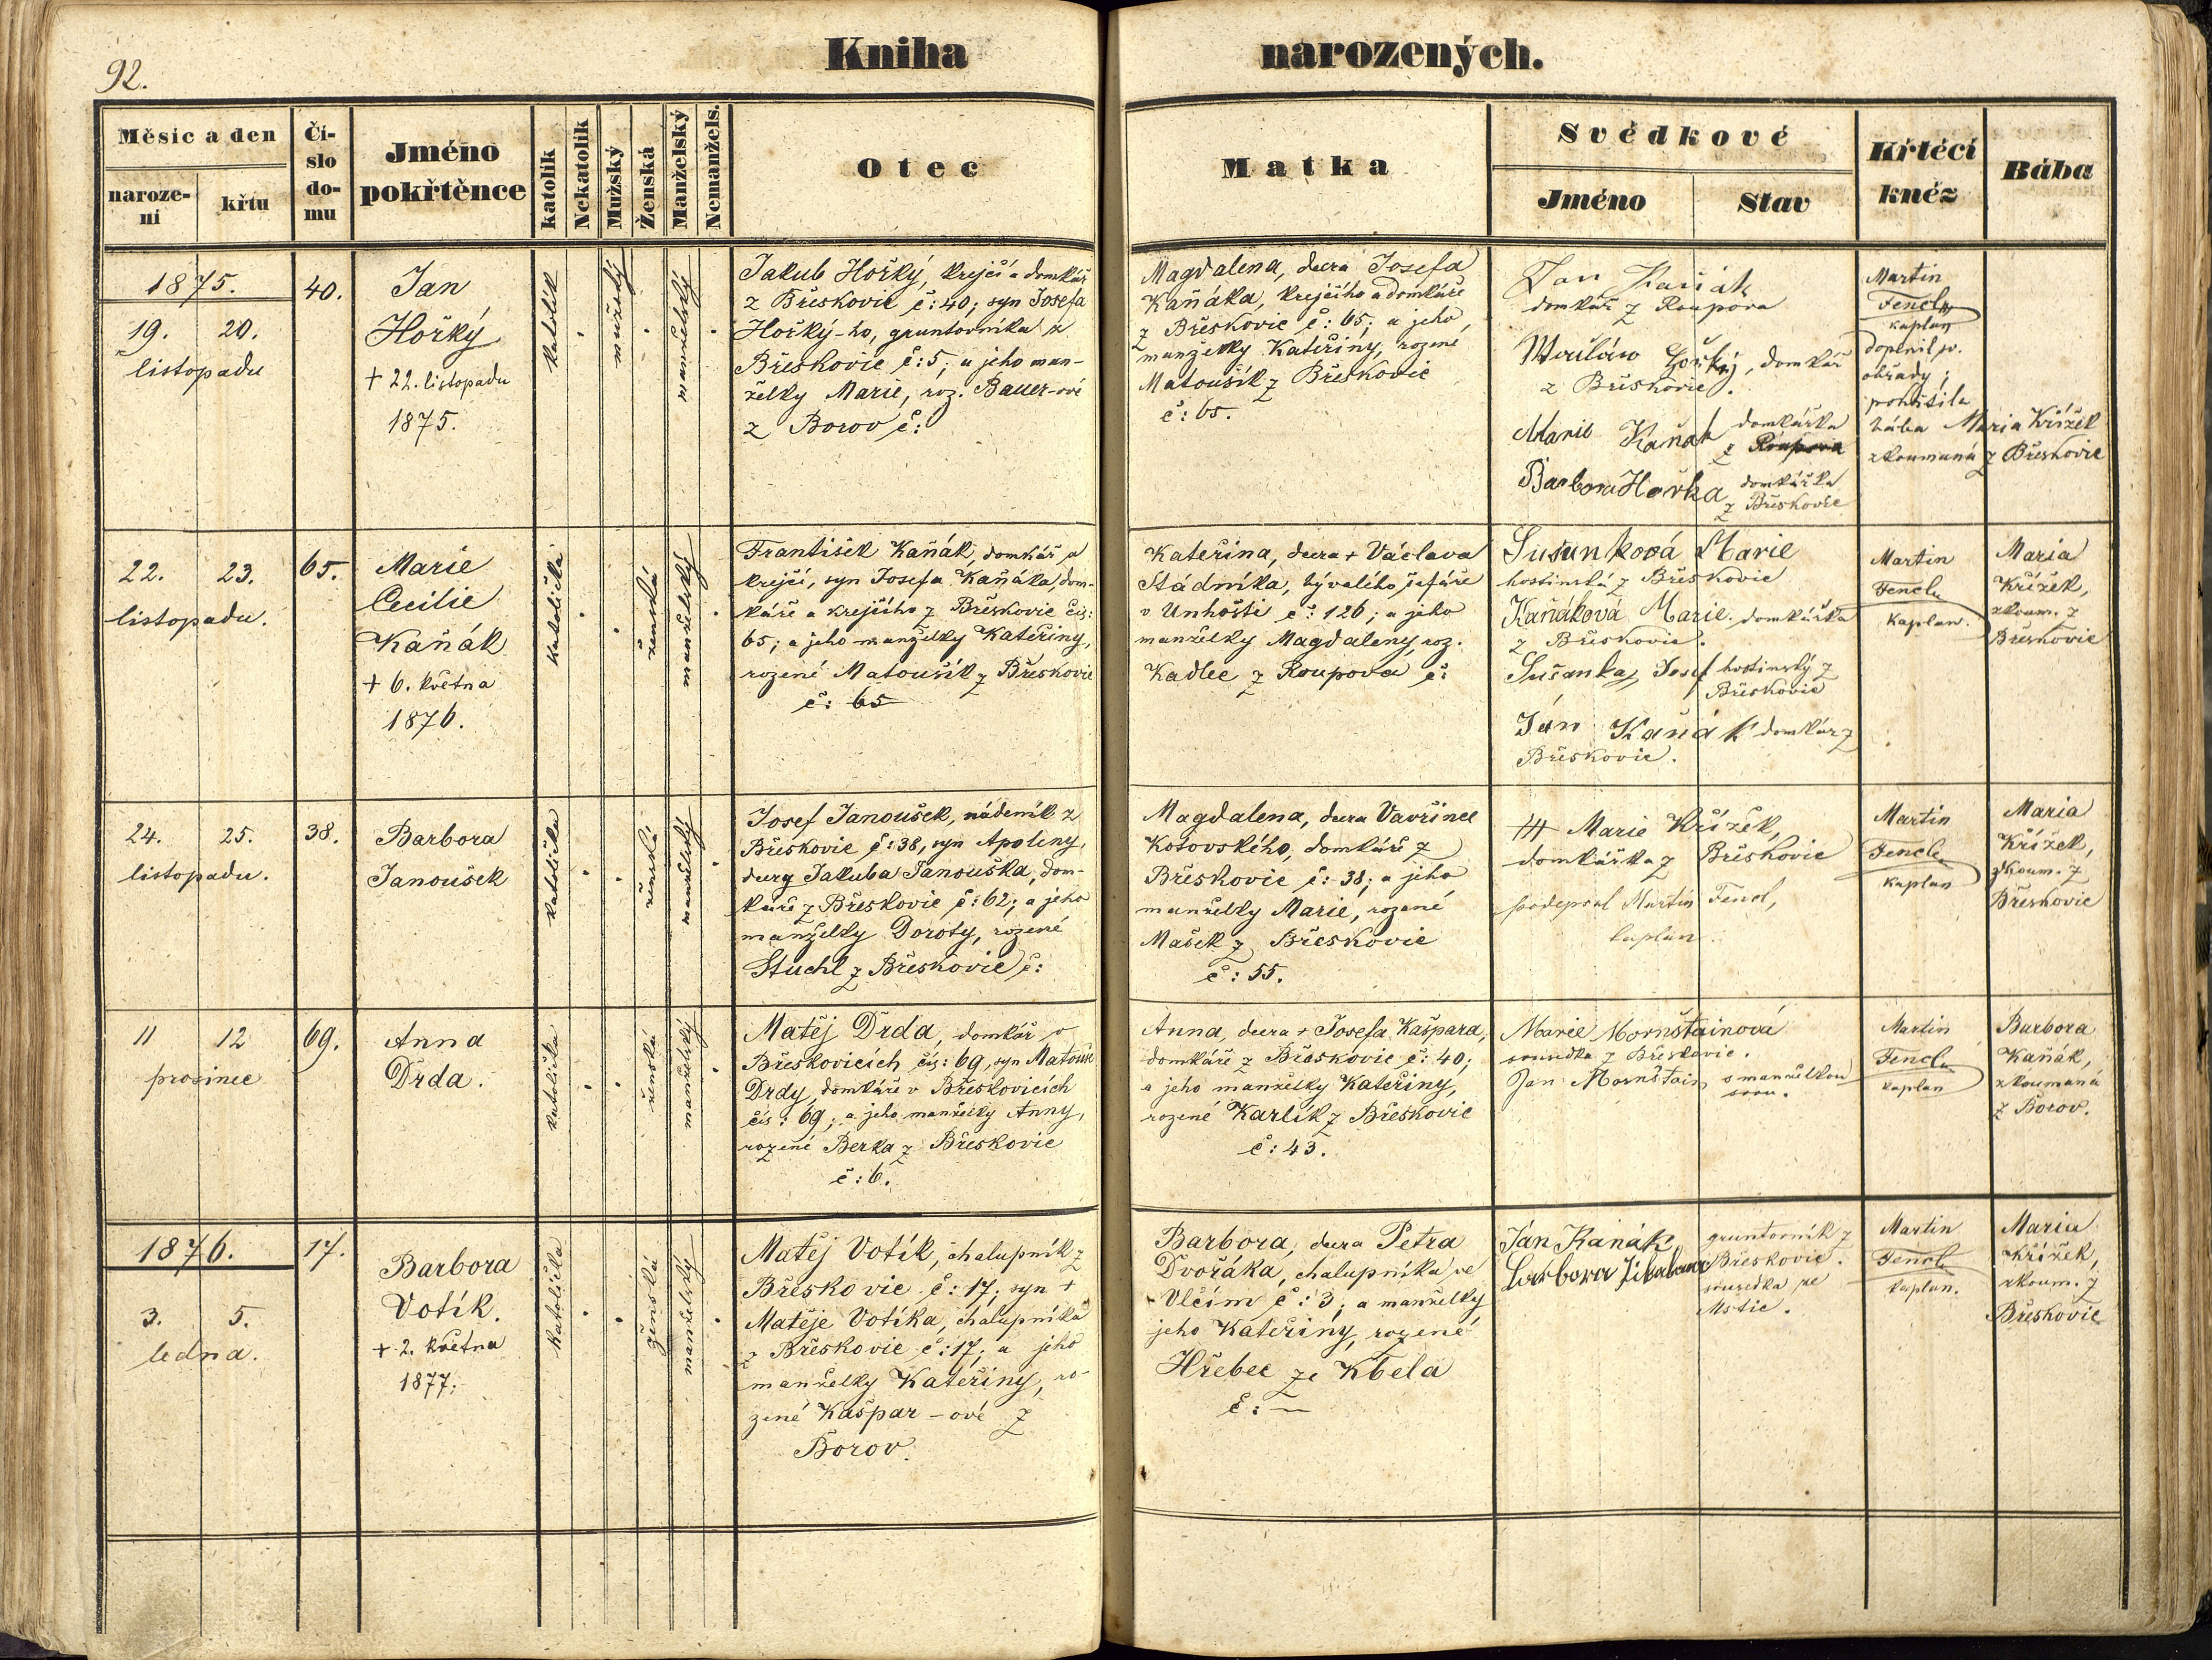 92.
Kniha narozených.
Měsíc a den
naroze-
ní
křtu
Čí-
slo
do-
mu
Jméno
pokřtěnce
katolík
Nekatolík
Mužský
Ženská
Manželský
Nemanžels.
Otec
Matka
Svědkové
Jméno
Stav
Křtěcí
kněz
Bába
1875.
19. 20.
listopadu
40.
Jan
Hořký
+ 22. listopadu
1875.
katolík
mužský
manželský
Jakub Hořký, krejčí a domkář
z Břeskovic č: 40; syn Josefa
Hořký-ho, gruntovníka z
Břeskovic č: 5; a jeho man-
želky Marie, roz. Bauer-ové
z Borov č:
Magdalena, dcera Josefa
Kaňáka, krejčího a domkáře
z Břeskovic č: 65; a jeho
manželky Kateřiny, rozené
Matoušík z Břeskovic
č: 65.
Jan Kaňák
domkář z Roupova
Hořký, domkář
z Břeskovic.
Marie Kaňák domkářka
z Roupova
Barbora Horka domkářka
z Břeskovic
Martin
Fencl
kaplan
doplnil sv.
obřady;
pokřtila
bába Maria Křížek
zkoumaná z Břeskovic
22. 23.
listopadu.
65.
Marie
Cecilie
Kaňák
+ 6. května
1876.
katolička
ženská
manželský
František Kaňák, domkář a
krejčí, syn Josefa Kaňáka, dom-
káře a krejčího z Břeskovic čís:
65; a jeho manželky Kateřiny,
rozené Matoušík z Břeskovic
č: 65
Kateřina, dcera + Václava
Stádníka, bývalého šafáře
v Unhošti č: 126; a jeho
manželky Magdaleny, roz.
Kadlec z Roupova č:
Sušanková Marie
hostinská z Břeskovic
Kaňáková Marie. domkářka
z Břeskovic.
Sušanka, Josef hostinský z
Břeskovic
Ján Kaňák domkář z
Břeskovic.
Martin
Fencl
kaplan.
Maria
Křížek,
zkoum. z
Břeskovic
24. 25.
listopadu.
38.
Barbora
Janoušek
katolička
ženská
manželský
Josef Janoušek, nádeník z
Břeskovic č: 38, syn Apoleny,
dcery Jakuba Janouška, dom-
káře z Břeskovic č: 62; a jeho
manželky Doroty, rozené
Stuchl z Břeskovic č:
Magdalena, dcera Vavřince
Kotovského, domkáře z
Břeskovic č: 38; a jeho
manželky Marie, rozené
Mašek z Břeskovic
č: 55.
+++ Marie Křížek,
domkářka z Břeskovic
podepsal Martin Fencl,
kaplan.
Martin
Fencl
kaplan
Maria
Křížek,
zkoum. z
Břeskovic
11 12
prosince
69.
Anna
Drda.
katolička
ženská
manželský
Matěj Drda, domkář v
Břeskovicích čís: 69, syn Matouše
Drdy, domkáře v Břeskovicích
čís: 69; a jeho manželky Anny,
rozené Berka z Břeskovic
č: 6.
Anna, dcera + Josefa Kašpara,
domkáře z Břeskovic č: 40;
a jeho manželky Kateřiny,
rozené Karlík z Břeskovic
č: 43.
Marie Mornštainová
sousedka z Břeskovic.
Jan Mornštain s manželkou
svou.
Martin
Fencl
kaplan
Barbora
Kaňák,
zkoumaná
z Borov.
1876.
3. 5.
ledna.
17.
Barbora
Votík.
+ 2. května
1877.
katolička
ženská
manželský
Matěj Votík, chalupník z
Břeskovic č: 17; syn +
Matěje Votíka, chalupníka
z Břeskovic č: 17; a jeho
manželky Kateřiny, ro-
zené Kašpar-ové z
Borov.
Barbora, dcera Petra
Dvořáka, chalupníka ve
Vlčím č: 3; a manželky
jeho Kateřiny, rozené
Hřebec ze Kbela
č: —
Ján Kaňák gruntovník z
Břeskovic.
Barbora sousedka ve
Mstic.
Martin
Fencl
kaplan.
Maria
Křížek,
zkoum. z
Břeskovic